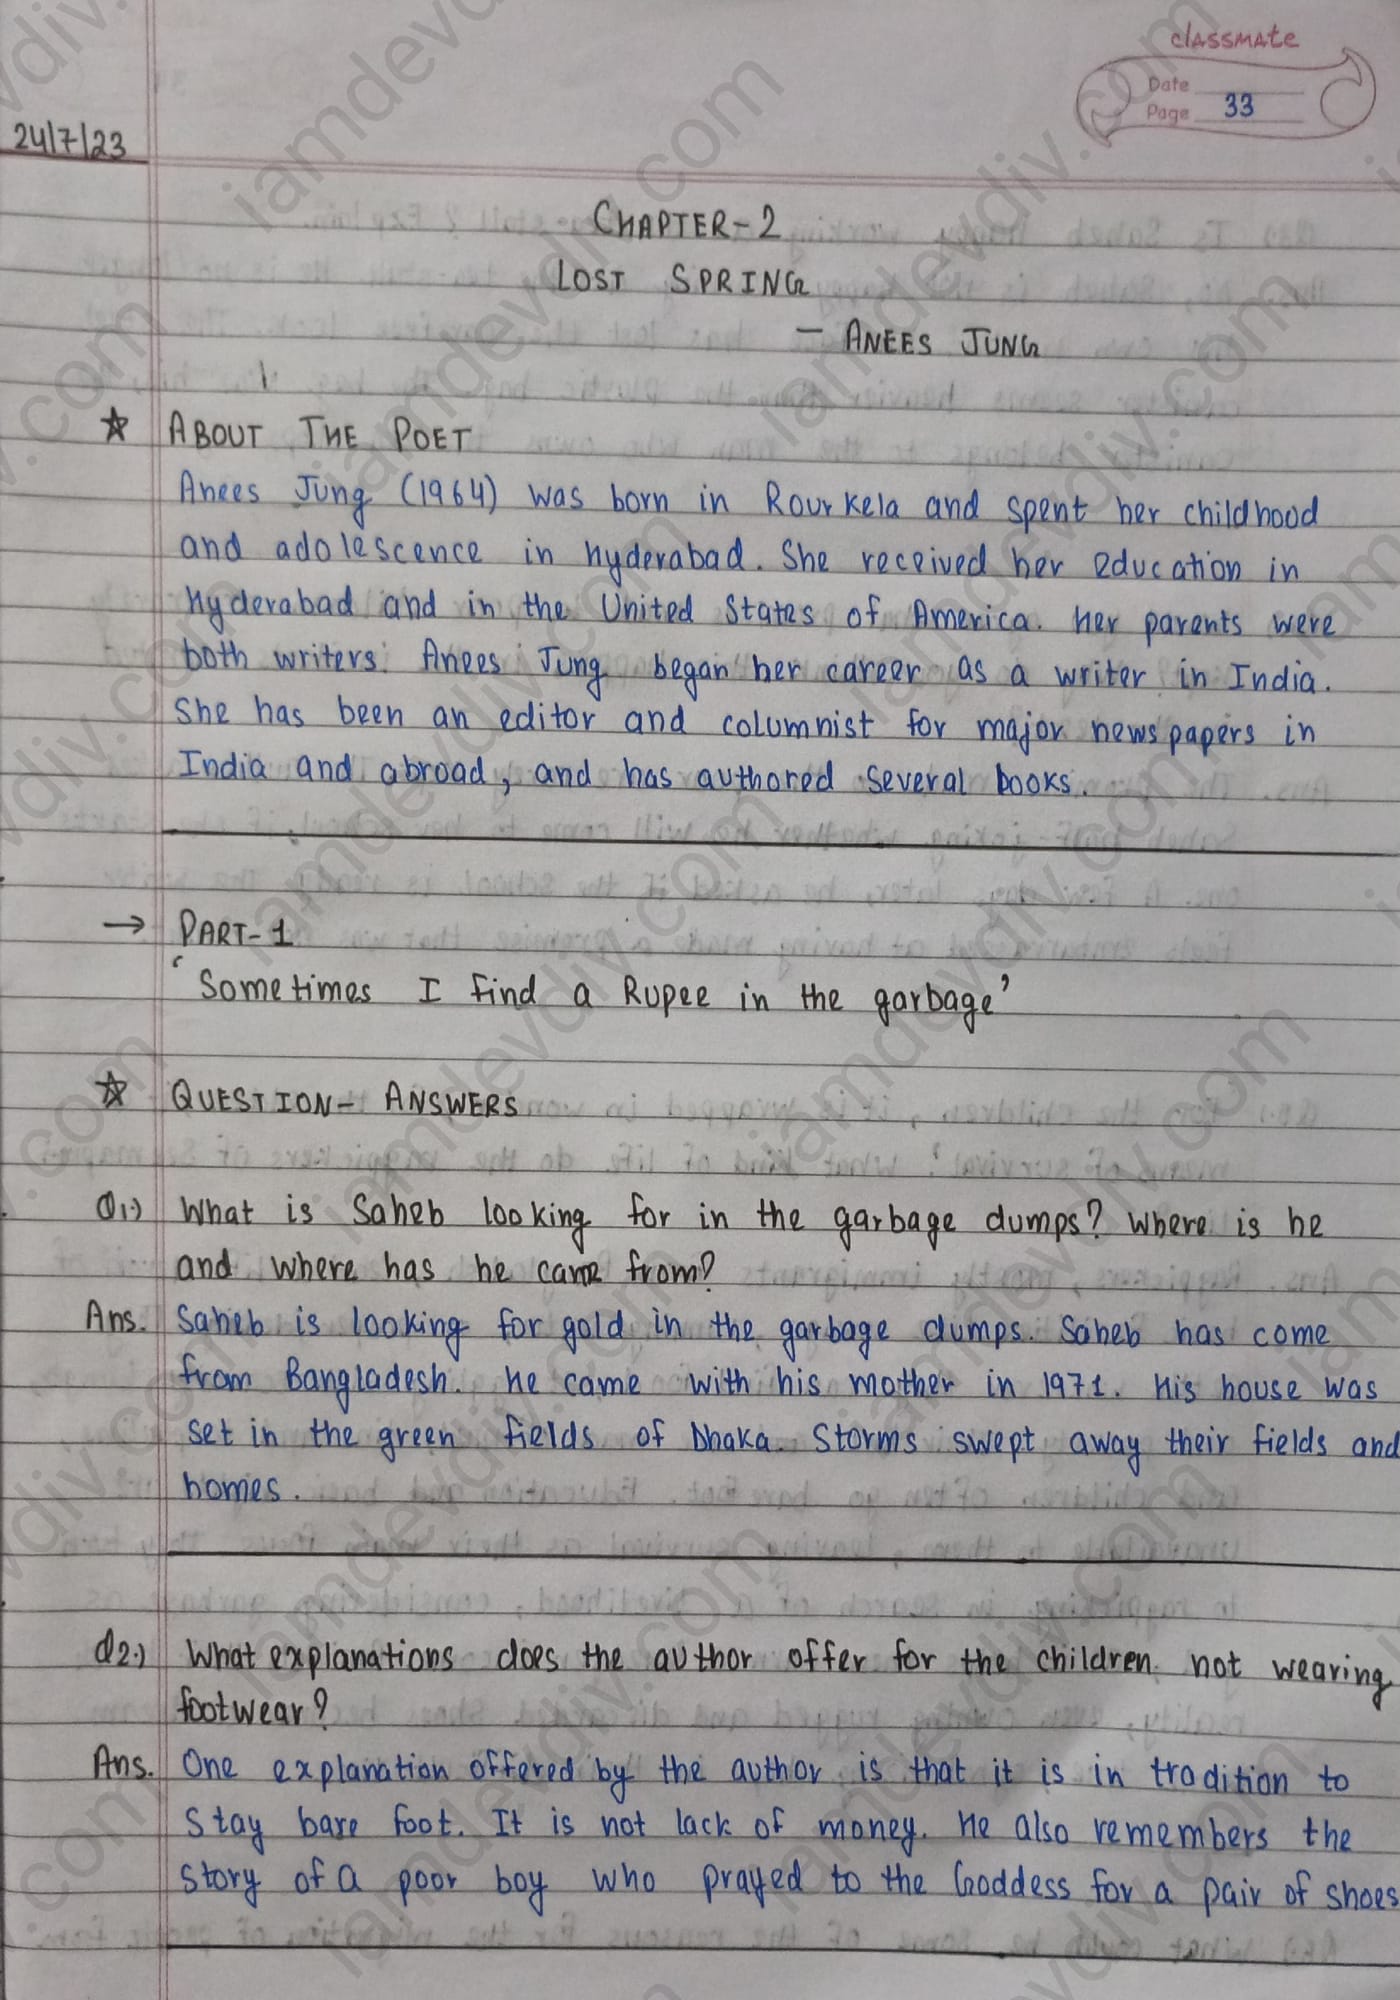 classmate
Date
Page 33
24/7/23
CHAPTER-2
LOST SPRING
- ANEES JUNG
☆ ABOUT THE POET
Anees Jung (1964) was born in Rourkela and spent her childhood
and adolescence in hyderabad. She received her education in
hyderabad and in the United States of America. her parents were
both writers. Anees Jung began her career as a writer in India.
She has been an editor and columnist for major newspapers in
India and abroad, and has authored several books.
→ PART-1
'Sometimes I find a Rupee in the garbage'
☆ QUESTION- ANSWERS
Q1.) What is Saheb looking for in the garbage dumps? Where is he
and where has he came from?
Ans. Saheb is looking for gold in the garbage dumps. Saheb has come
from Bangladesh. he came with his mother in 1971. his house was
set in the green fields of Dhaka. Storms swept away their fields and
homes.
Q2.) What explanations does the author offer for the children not wearing
footwear?
Ans. One explanation offered by the author is that it is in tradition to
Stay bare foot. It is not lack of money. he also remembers the
story of a poor boy who prayed to the Goddess for a pair of shoes
iamdevdiv.com